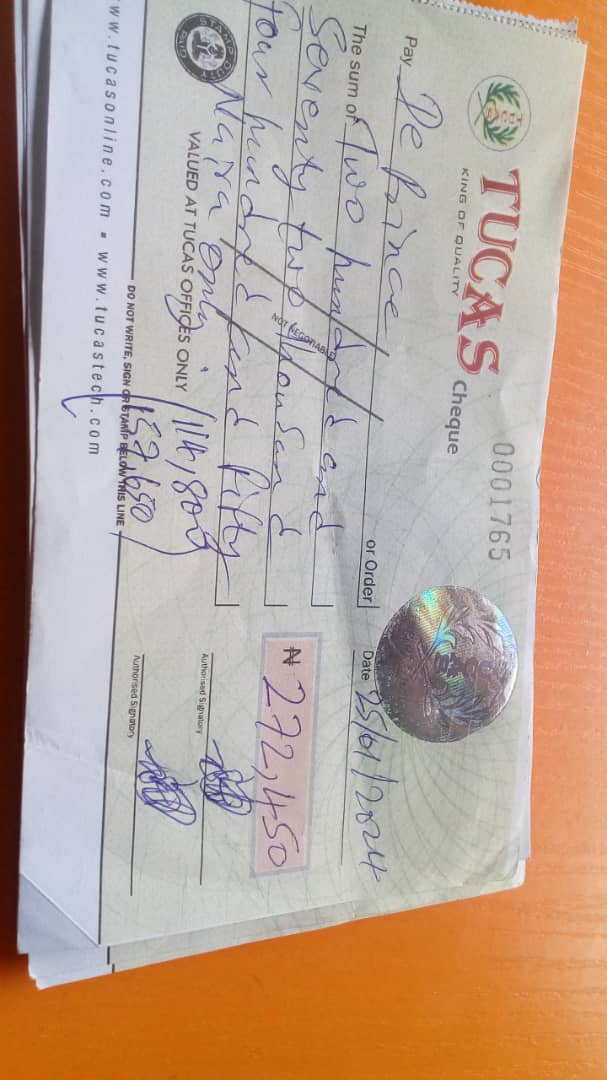 TUCAS Cheque
KING OF QUALITY
0001765
Pay De Prince or Order
Date 25/01/2024
The sum of Two hundred and
Seventy two thousand
four hundred and fifty
Naira only
NOT NEGOTIABLE
₦ 272,450
STAMP DUTY
VALUED AT TUCAS OFFICES ONLY
114,800
137,650
Authorised Signatory
Authorised Signatory
DO NOT WRITE, SIGN OR STAMP BELOW THIS LINE
www.tucasonline.com • www.tucastech.com